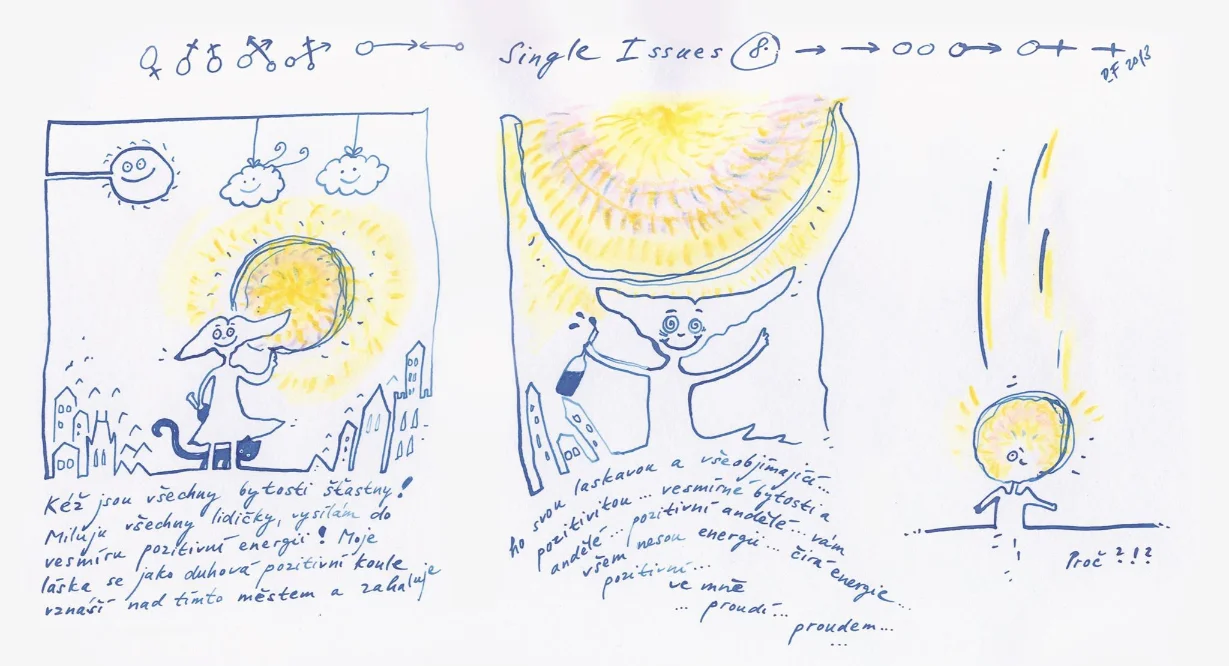 Single Issues 8.
DF 2013
Kéž jsou všechny bytosti šťastny!
Miluju všechny lidičky, vysílám do
vesmíru pozitivní energii! Moje
láska se jako duhová pozitivní koule
vznáší nad tímto městem a zahaluje
ho svou laskavou a všeobjímající...
pozitivitou... vesmírné bytosti a
andělé... pozitivní andělé... vám
všem nesou energii... čirá energie...
pozitivní...
ve mně
... proudí...
proudem...
...
Proč ?!?